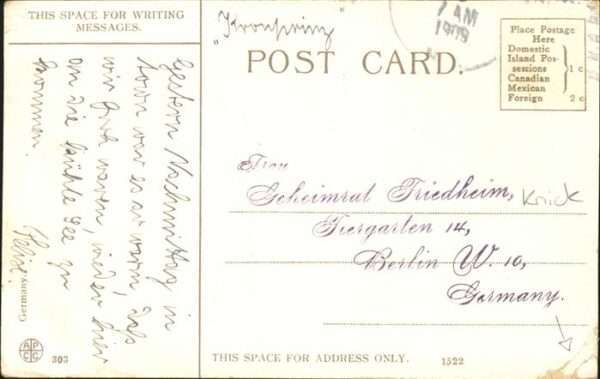 THIS SPACE FOR WRITING
MESSAGES.
"Kronprinz"
7 AM
1909
POST CARD.
Place Postage
Here
Domestic
Island Pos-
sessions
Canadian
Mexican
1 c
Foreign 2 c
Gestern Nachmittag in
town war es so warm, dass
wir froh waren, wieder hier
an die kühle See zu
kommen.
Felix.
Frau
Geheimrat Friedheim,
Knick
Tiergarten 14,
Berlin W. 10,
Germany.
Germany
A P C C
303
THIS SPACE FOR ADDRESS ONLY.
1522